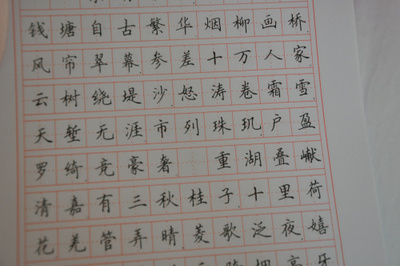 钱塘自古繁华烟柳画桥
风帘翠幕参差十万人家
云树绕堤沙怒涛卷霜雪
天堑无涯市列珠玑户盈
罗绮竞豪奢 重湖叠巘
清嘉有三秋桂子十里荷
花羌管弄晴菱歌泛夜嬉